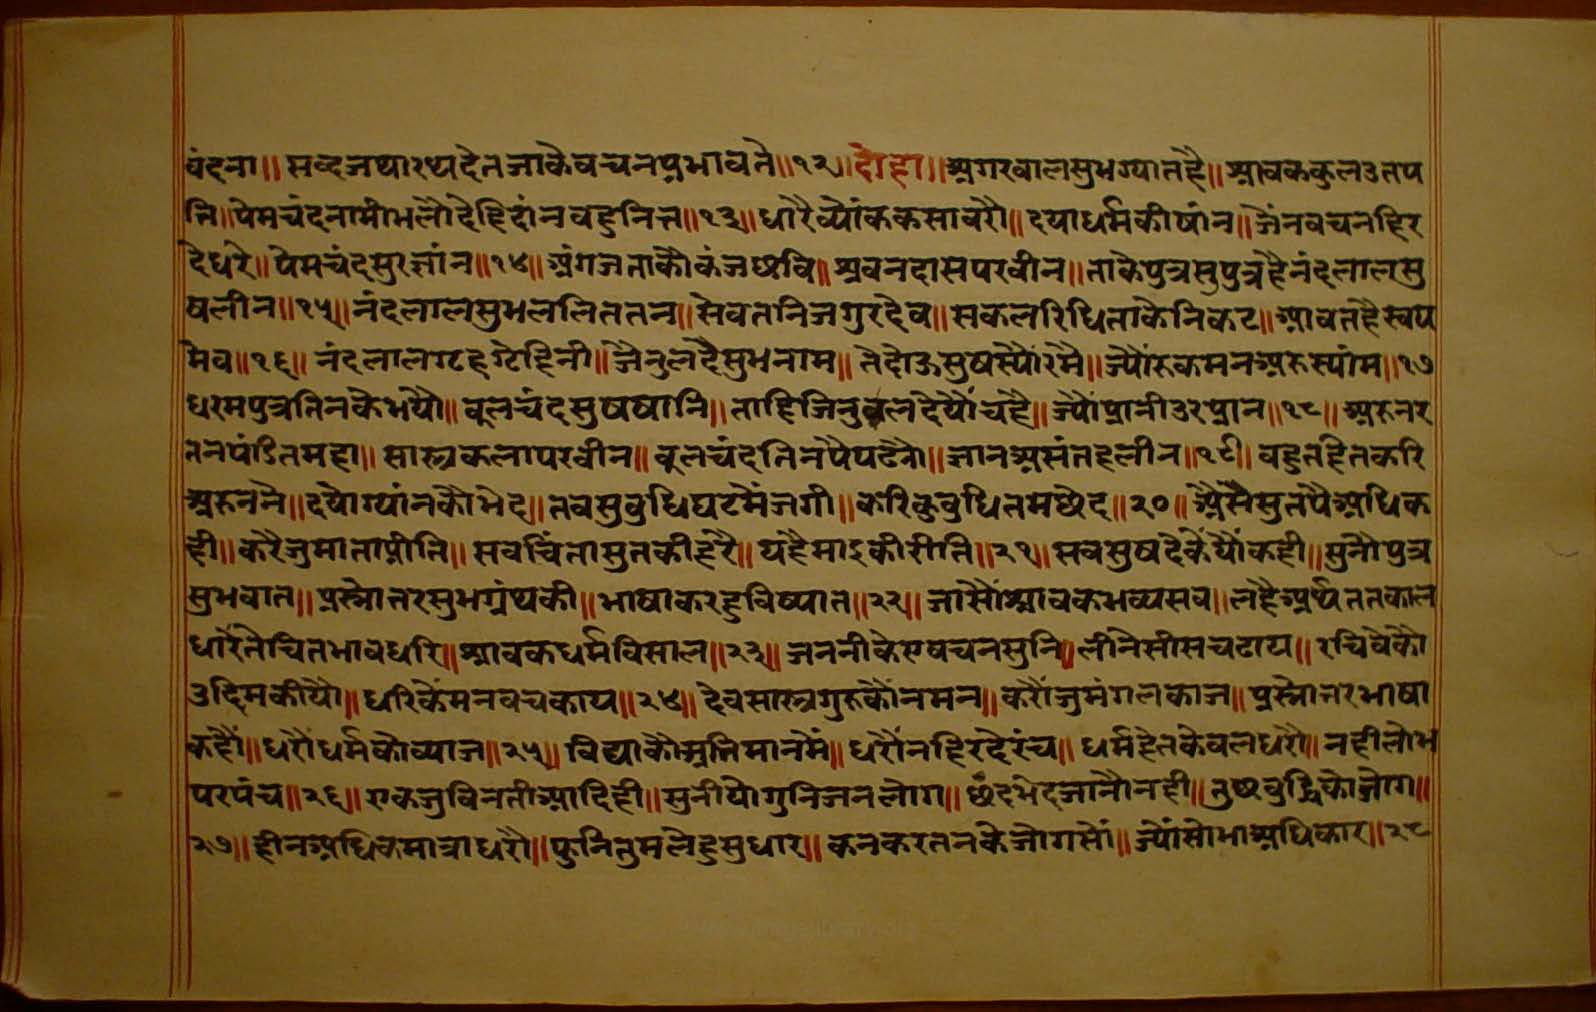 वंदना॥ सब्दजथारथदेतजाकैवचनप्रभावतै॥१२॥दोहा॥अगरवालसुभग्यातहै॥श्रावककुलउतप
त्ति॥पेमचंदनामीभलौदेहिदांनवहुनित्त॥१३॥धारैव्यौंककसावरौ॥दयाधर्मकीषांन॥जैंनवचनहिर
देधरे॥पेमचंदसुरज्ञांन॥१४॥अंगजताकौकंजछवि॥श्रवनदासपरवीन॥ताकेपुत्रसुपुत्रहैनंदलालसु
षलीन॥१५॥नंदलालसुभललिततन॥सेवतनिजगुरदेव॥सकलरिधिताकेनिकट॥आवतहैस्वय
मेव॥१६॥ नंदलालग्रहगेहिनी॥जैनुलदेसुभनाम॥तेदोऊसुषस्यौंरमै॥ज्यौंरुकमनअरुस्यांम॥१७
धरमपुत्रतिनकेभयौ॥वूलचंदसुषषानि॥ताहिजिनुवलदेयौंचहै॥ज्यौंप्रानीउरप्रान॥१८॥अरुनर
तनपंडितमहा॥सास्त्रकलापरवीन॥वूलचंदतिनपैपढनो॥ज्ञानअसंतहलीन॥१९॥वहुतहितकरि
अरुननै॥दयौग्यांनकौभेद॥तवसुवुधिघटमैंजगी॥करिकुवुधितमछेद॥२०॥अैसैसुतपैअधिक
ही॥करैजुमाताप्रीति॥सवचिंतासुतकीहरै॥यहैमाइकीरीति॥२१॥सवसुषदेकेंयौंकही॥सुनौपुत्र
सुभवात॥प्रस्नोत्तरसुभग्रंथकी॥भाषाकरहुविष्यात॥२२॥जासौंश्रावकभव्यसव॥लहैअर्थततकाल
धारैतेचितभावधरि॥श्रावकधर्मविसाल॥२३॥जननीकेएवचनसुनि॥लीनेसीसचढाय॥रचिवेकौ
उदिमकीयौ॥धरिकेंमनवचकाय॥२४॥देवसास्त्रगुरुकौंनमन॥करौंजुमंगलकाज॥प्रस्नोत्तरभाषा
कहौं॥धरौंधर्मकोव्याज॥२५॥विद्याकौअभिमानमैं॥धरौंनहिरदैरंच॥धर्महेतकेवलधरौ॥नहीलोभ
परपंच॥२६॥एकजुविनतीआदिही॥सुनीयोगुनिजनलोग॥छंदभेदजानौनही॥तुछवुद्धिकोजोग॥
२७॥हीनअधिकमात्राधरौ॥फुनितुमलेहुसुधार॥कनकरतनकेजोगसौं॥ज्यौंसोभाअधिकार॥२८